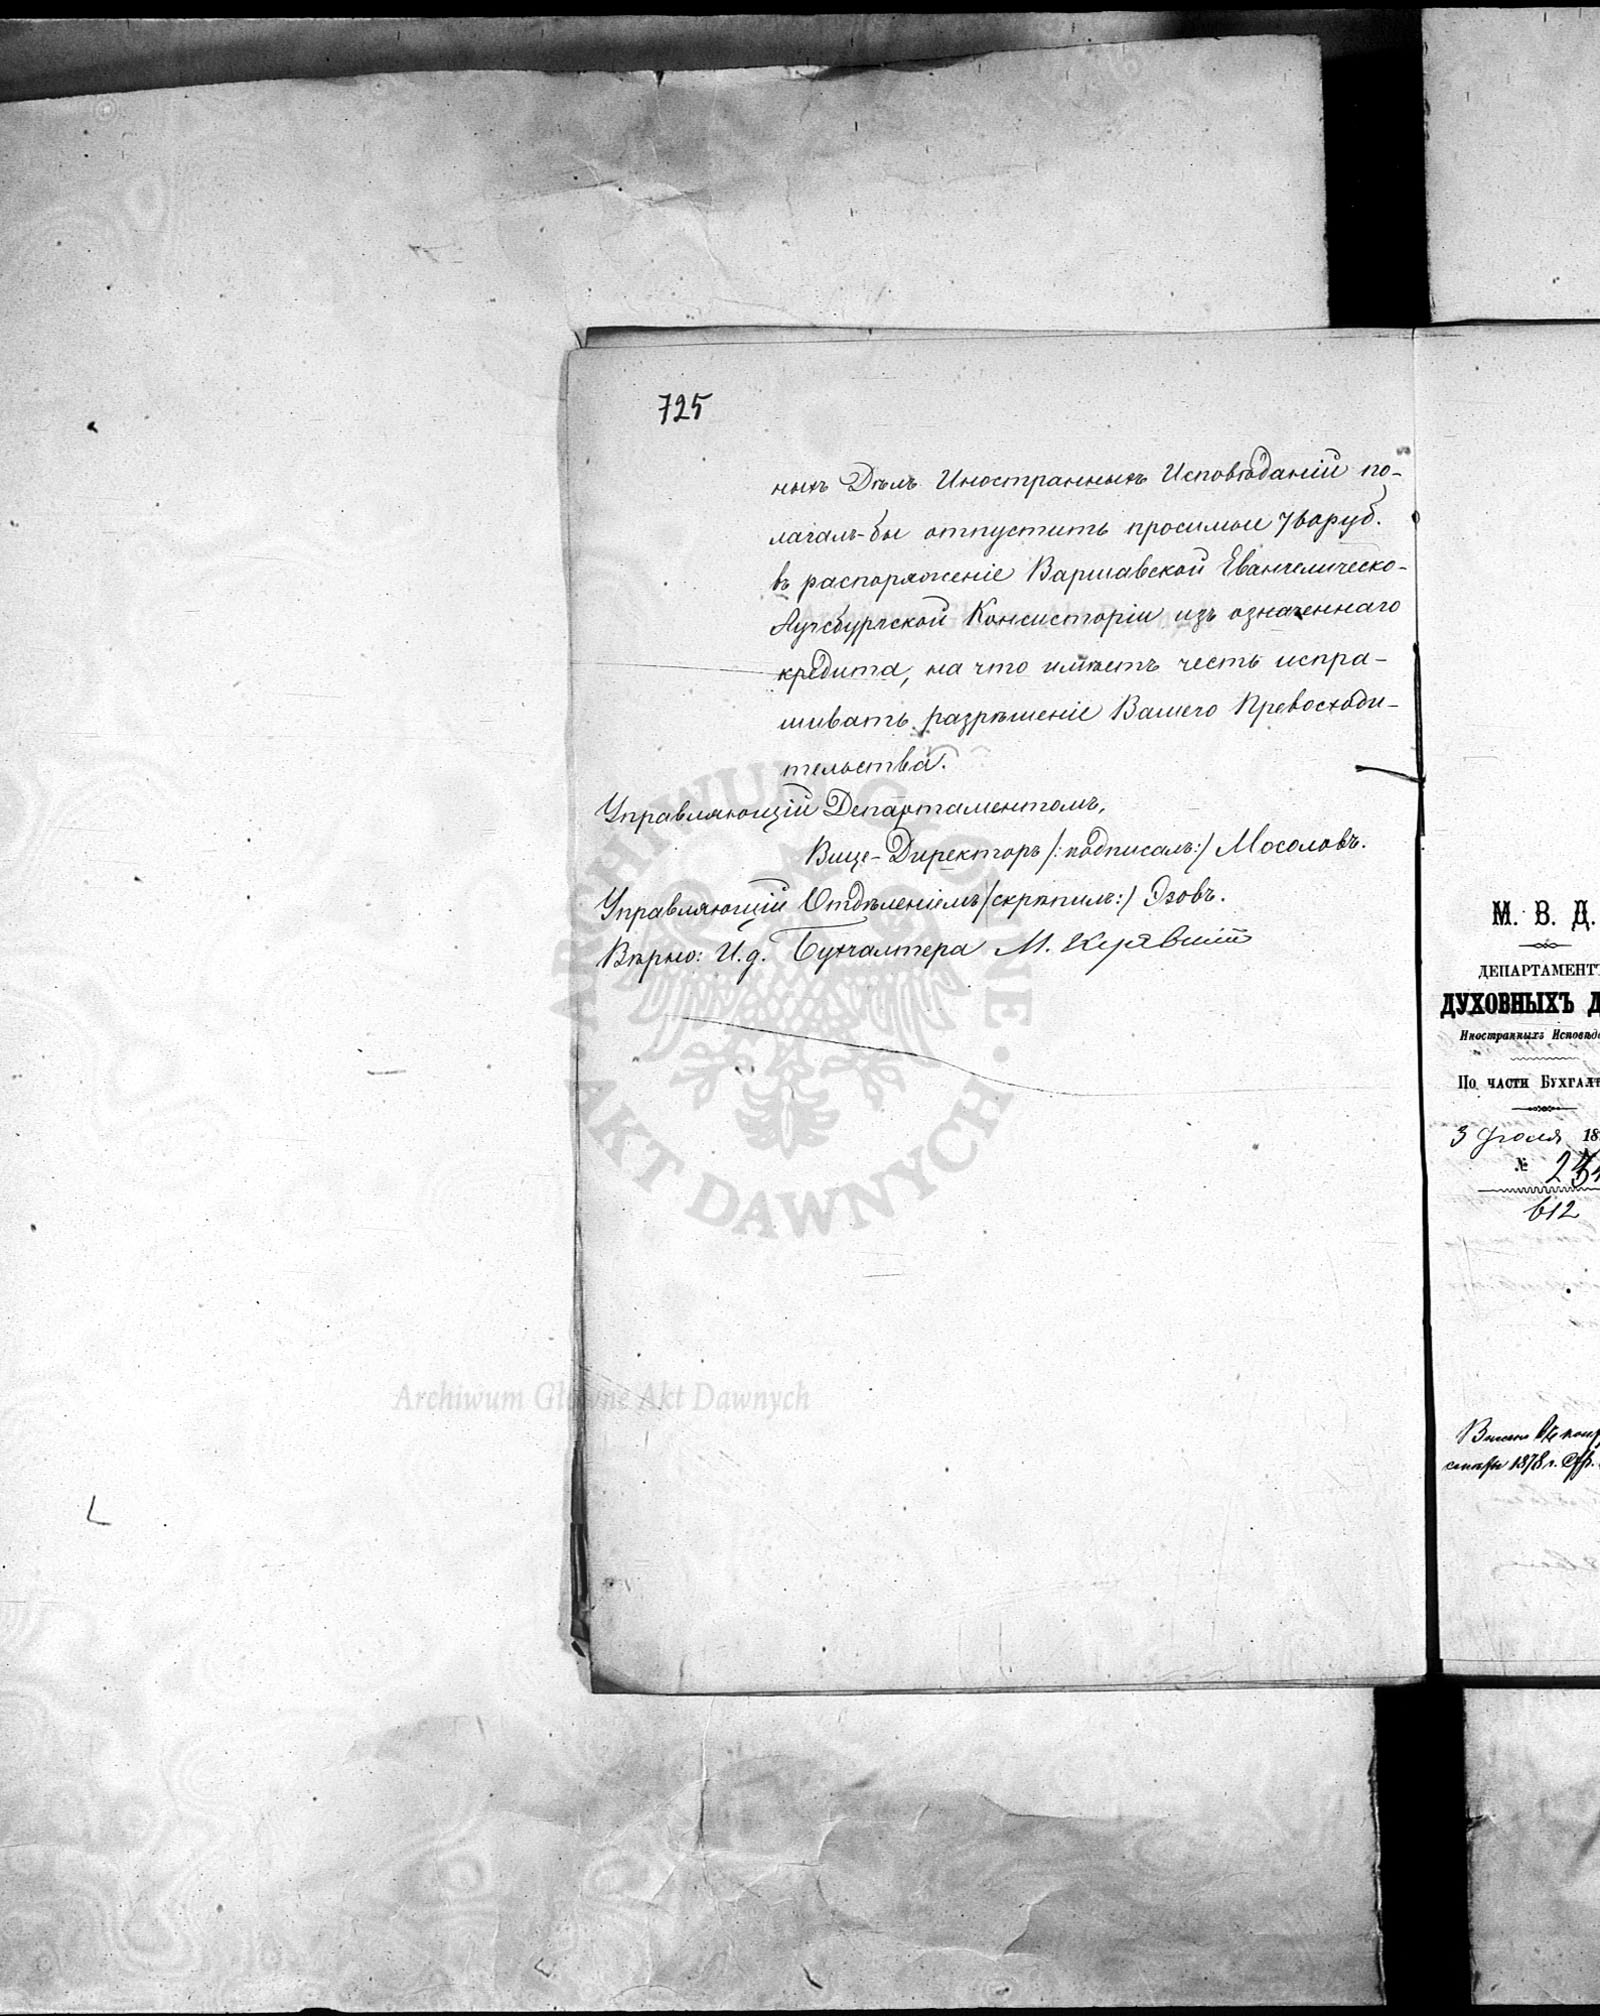 725
ныхъ Дѣлъ Иностранныхъ Исповѣданій по-
лагалъ-бы отпустить просимые 760 руб.
въ распоряженіе Варшавской Евангелическо-
Аугсбургской Консисторіи изъ означеннаго
кредита, на что имѣетъ честь испра-
шивать разрѣшеніе Вашего Превосходи-
тельства.
Управляющій Департаментомъ,
Вице-Директоръ /:подписалъ:/ Мосоловъ.
Управляющій Отдѣленіемъ /скрѣпилъ:/ Эзовъ.
Вѣрно: И.д. Бухгалтера М.
ARCHIWUM GŁÓWNE AKT DAWNYCH
Archiwum Główne Akt Dawnych
М. В. Д.
ДЕПАРТАМЕНТЪ
ДУХОВНЫХЪ Д
Иностранныхъ Исповѣда
По части Бухгалт
3 Іюля 18
№ 23
612
1878 г.